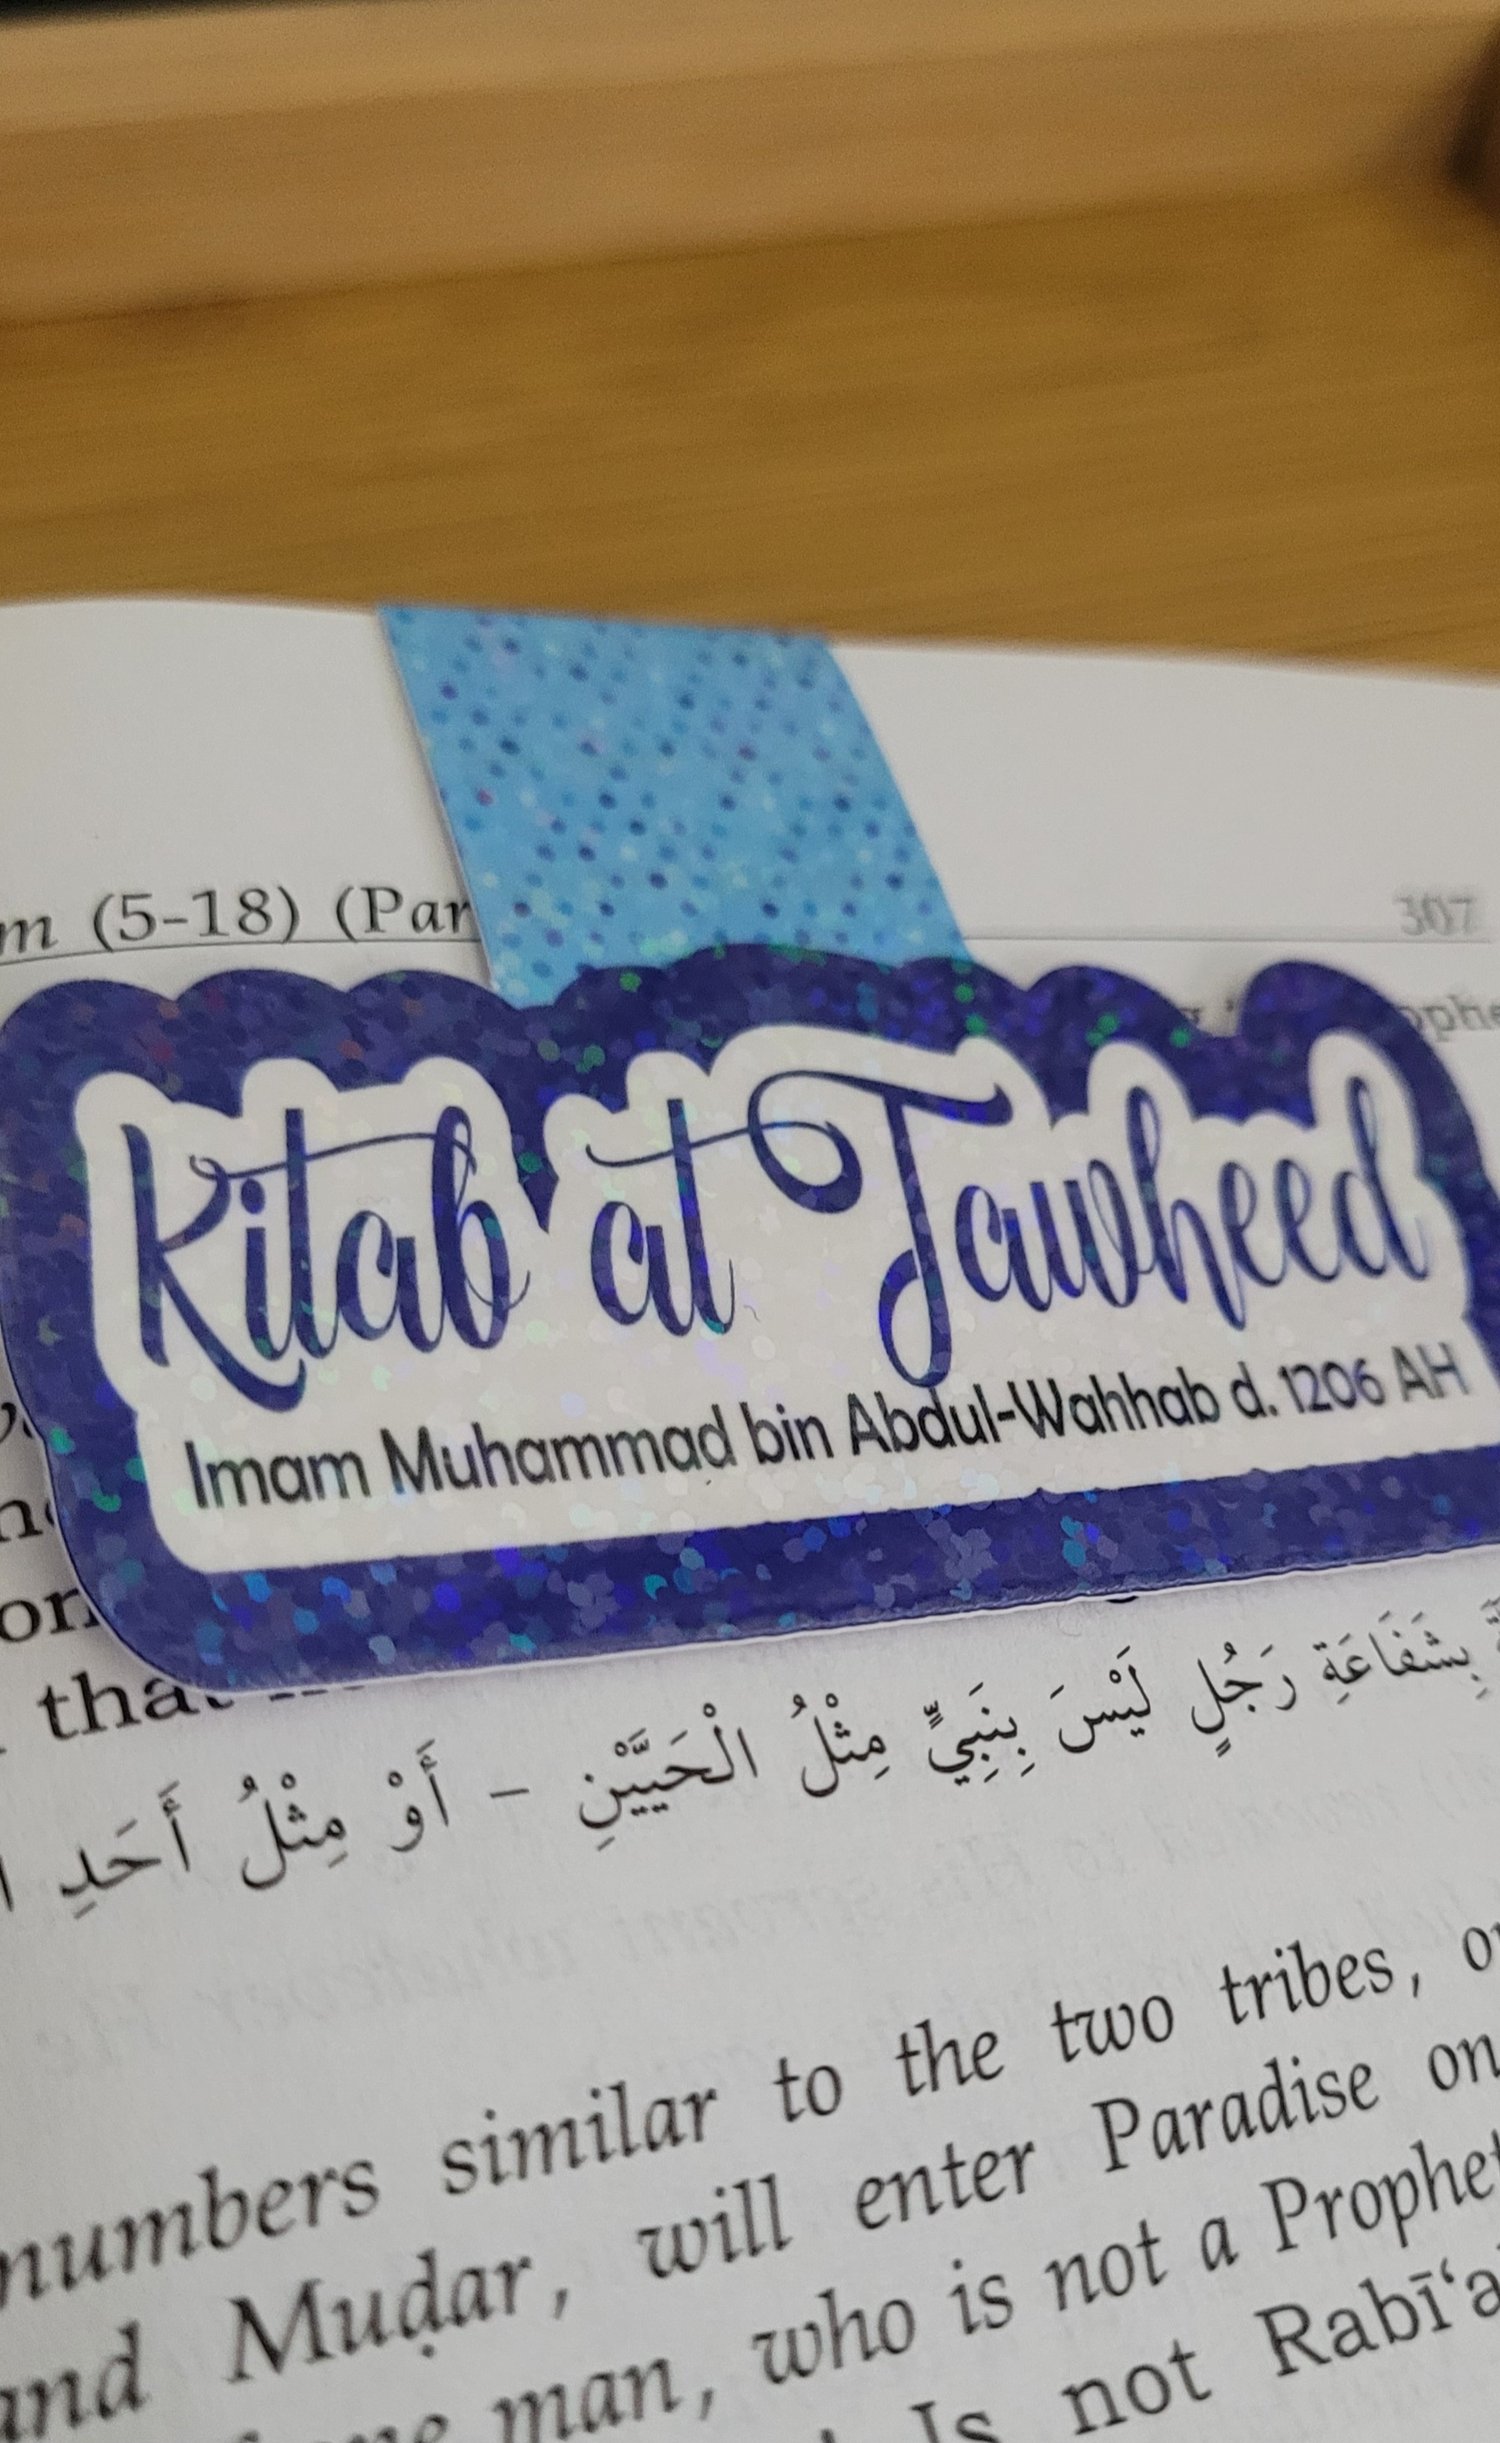 m (5-18) (Par
307
Kitab at Tawheed
Imam Muhammad bin Abdul-Wahhab d. 1206 AH
that
بِشَفَاعَةِ رَجُلٍ لَيْسَ بِنَبِيٍّ مِثْلُ الْحَيَّيْنِ - أَوْ مِثْلُ أَحَدِ
numbers similar to the two tribes,
and Muḍar, will enter Paradise on
man, who is not a Prophet
Is not Rabī‘a